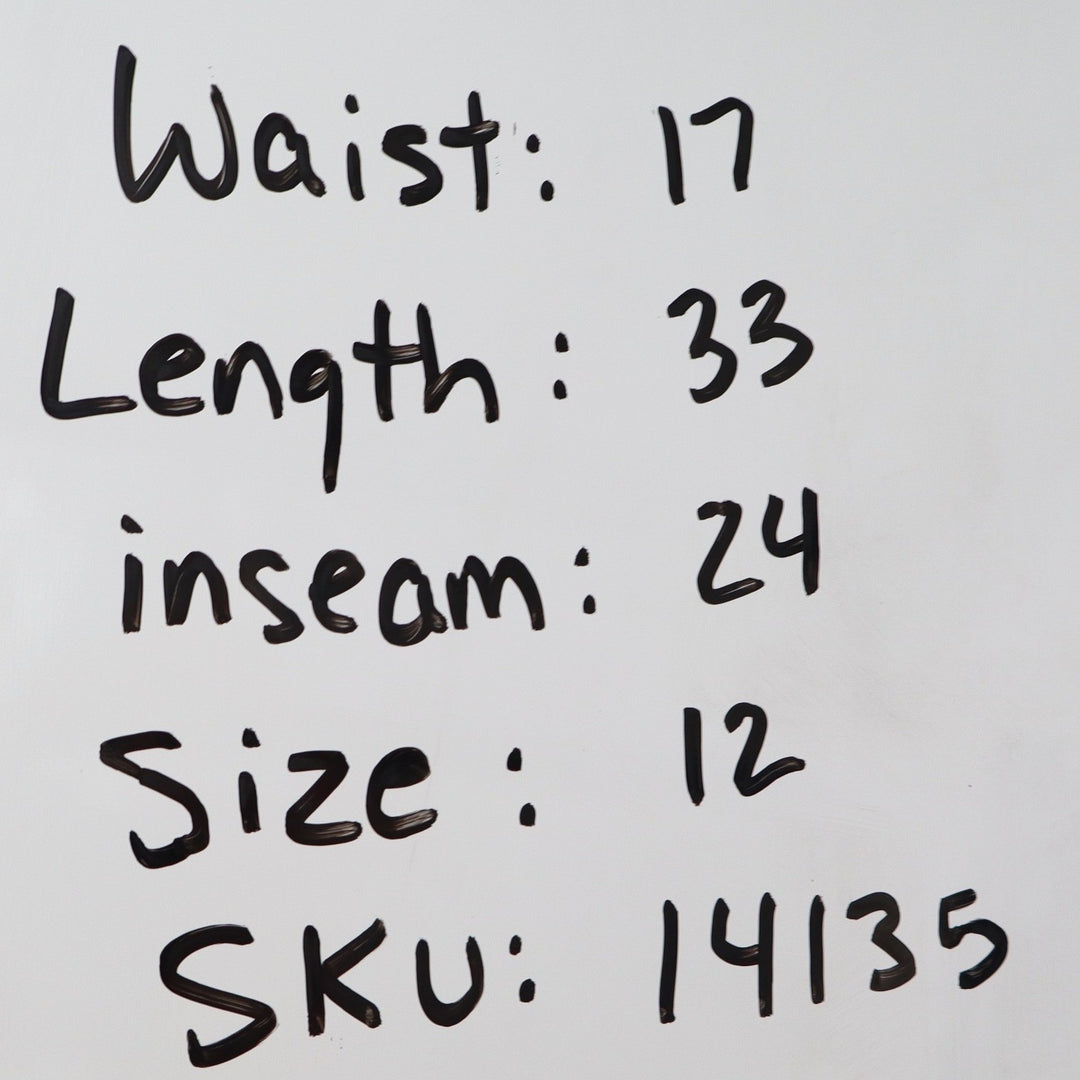 Waist: 17
Length: 33
inseam: 24
Size: 12
SKU: 14135